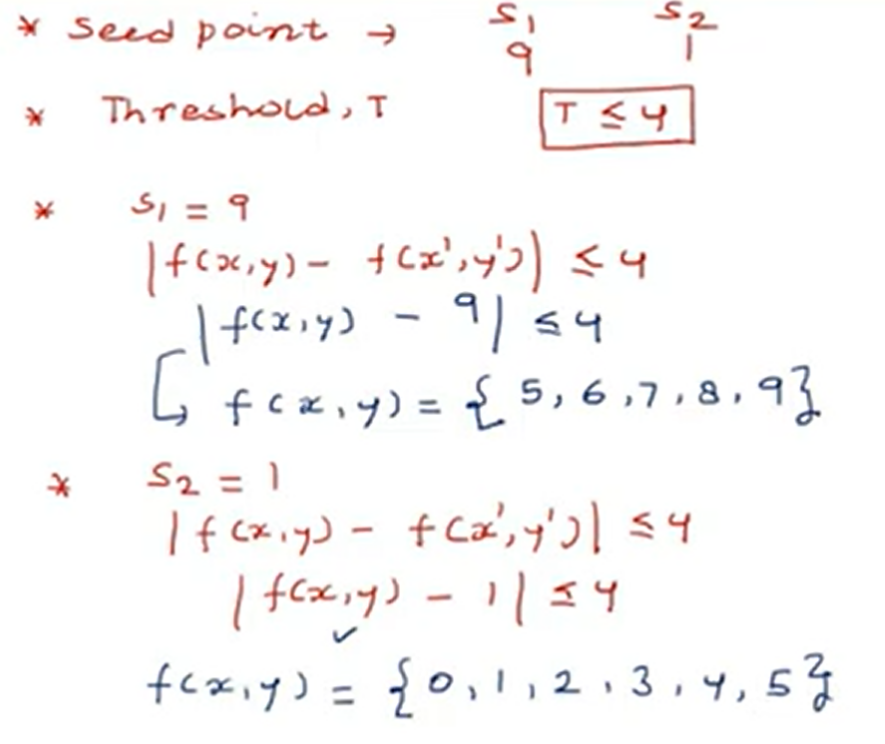 * Seed point → S₁ S₂
9 1
* Threshold, T T ≤ 4
* S₁ = 9
|f(x,y) - f(x',y')| ≤ 4
|f(x,y) - 9| ≤ 4
↳ f(x,y) = {5, 6, 7, 8, 9}
* S₂ = 1
|f(x,y) - f(x',y')| ≤ 4
|f(x,y) - 1| ≤ 4
✓
f(x,y) = {0, 1, 2, 3, 4, 5}